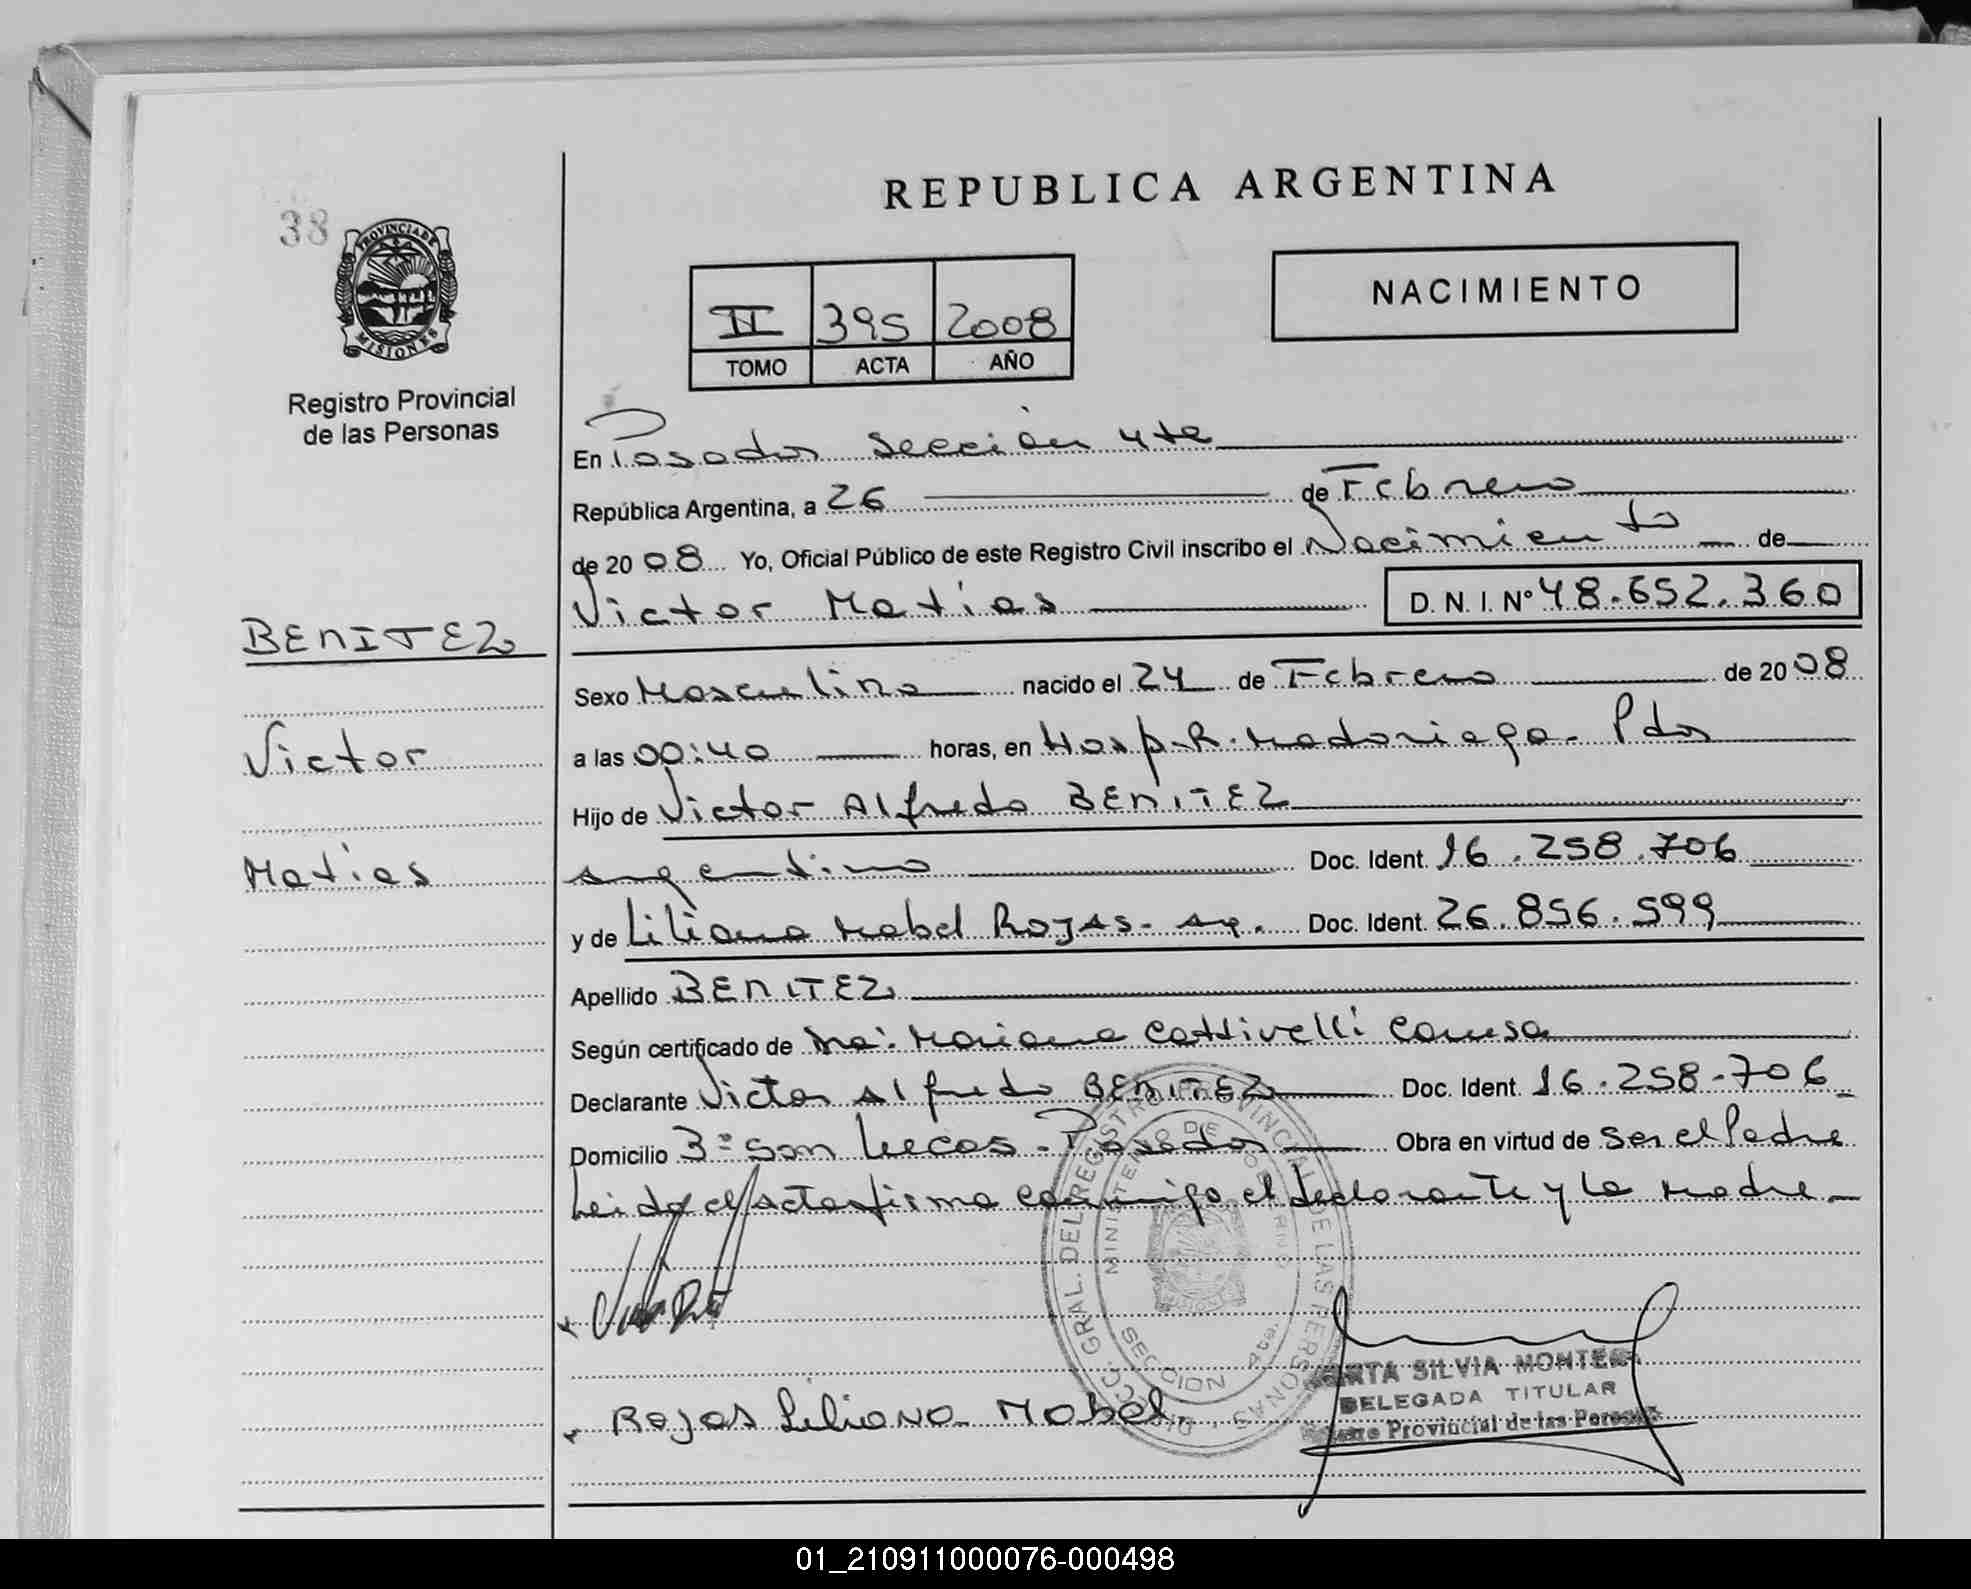 REPUBLICA ARGENTINA
38
PROVINCIA DE
MISIONES
Registro Provincial
de las Personas
II 395 2008
TOMO ACTA AÑO
NACIMIENTO
En Posadas Sección 4ta
República Argentina, a 26 de Febrero
de 2008 Yo, Oficial Público de este Registro Civil inscribo el Nacimiento de
Victor Matias D. N. I. Nº 48.652.360
BENITEZ
Victor
Matias
Sexo Masculino nacido el 24 de Febrero de 2008
a las 00:40 horas, en Hosp. R. Madariaga - Pdas
Hijo de Victor Alfredo BENITEZ
argentino Doc. Ident. 16.258.706
y de Liliana Mabel ROJAS - Arg. Doc. Ident. 26.856.599
Apellido BENITEZ
Según certificado de Mariana Cattivelli
Declarante Victor Alfredo BENITEZ Doc. Ident. 16.258.706
Domicilio Bº San Lucas - Posadas Obra en virtud de ser el Padre
Leida el acta firma conmigo el declarante y la Madre
DIRECC. GRAL. DEL REGISTRO PROVINCIAL DE LAS PERSONAS
MINISTERIO DE GOBIERNO
SECCION 4ta.
Rojas Liliana Mabel
SILVIA
DELEGADA TITULAR
Provincial de las
01_210911000076-000498